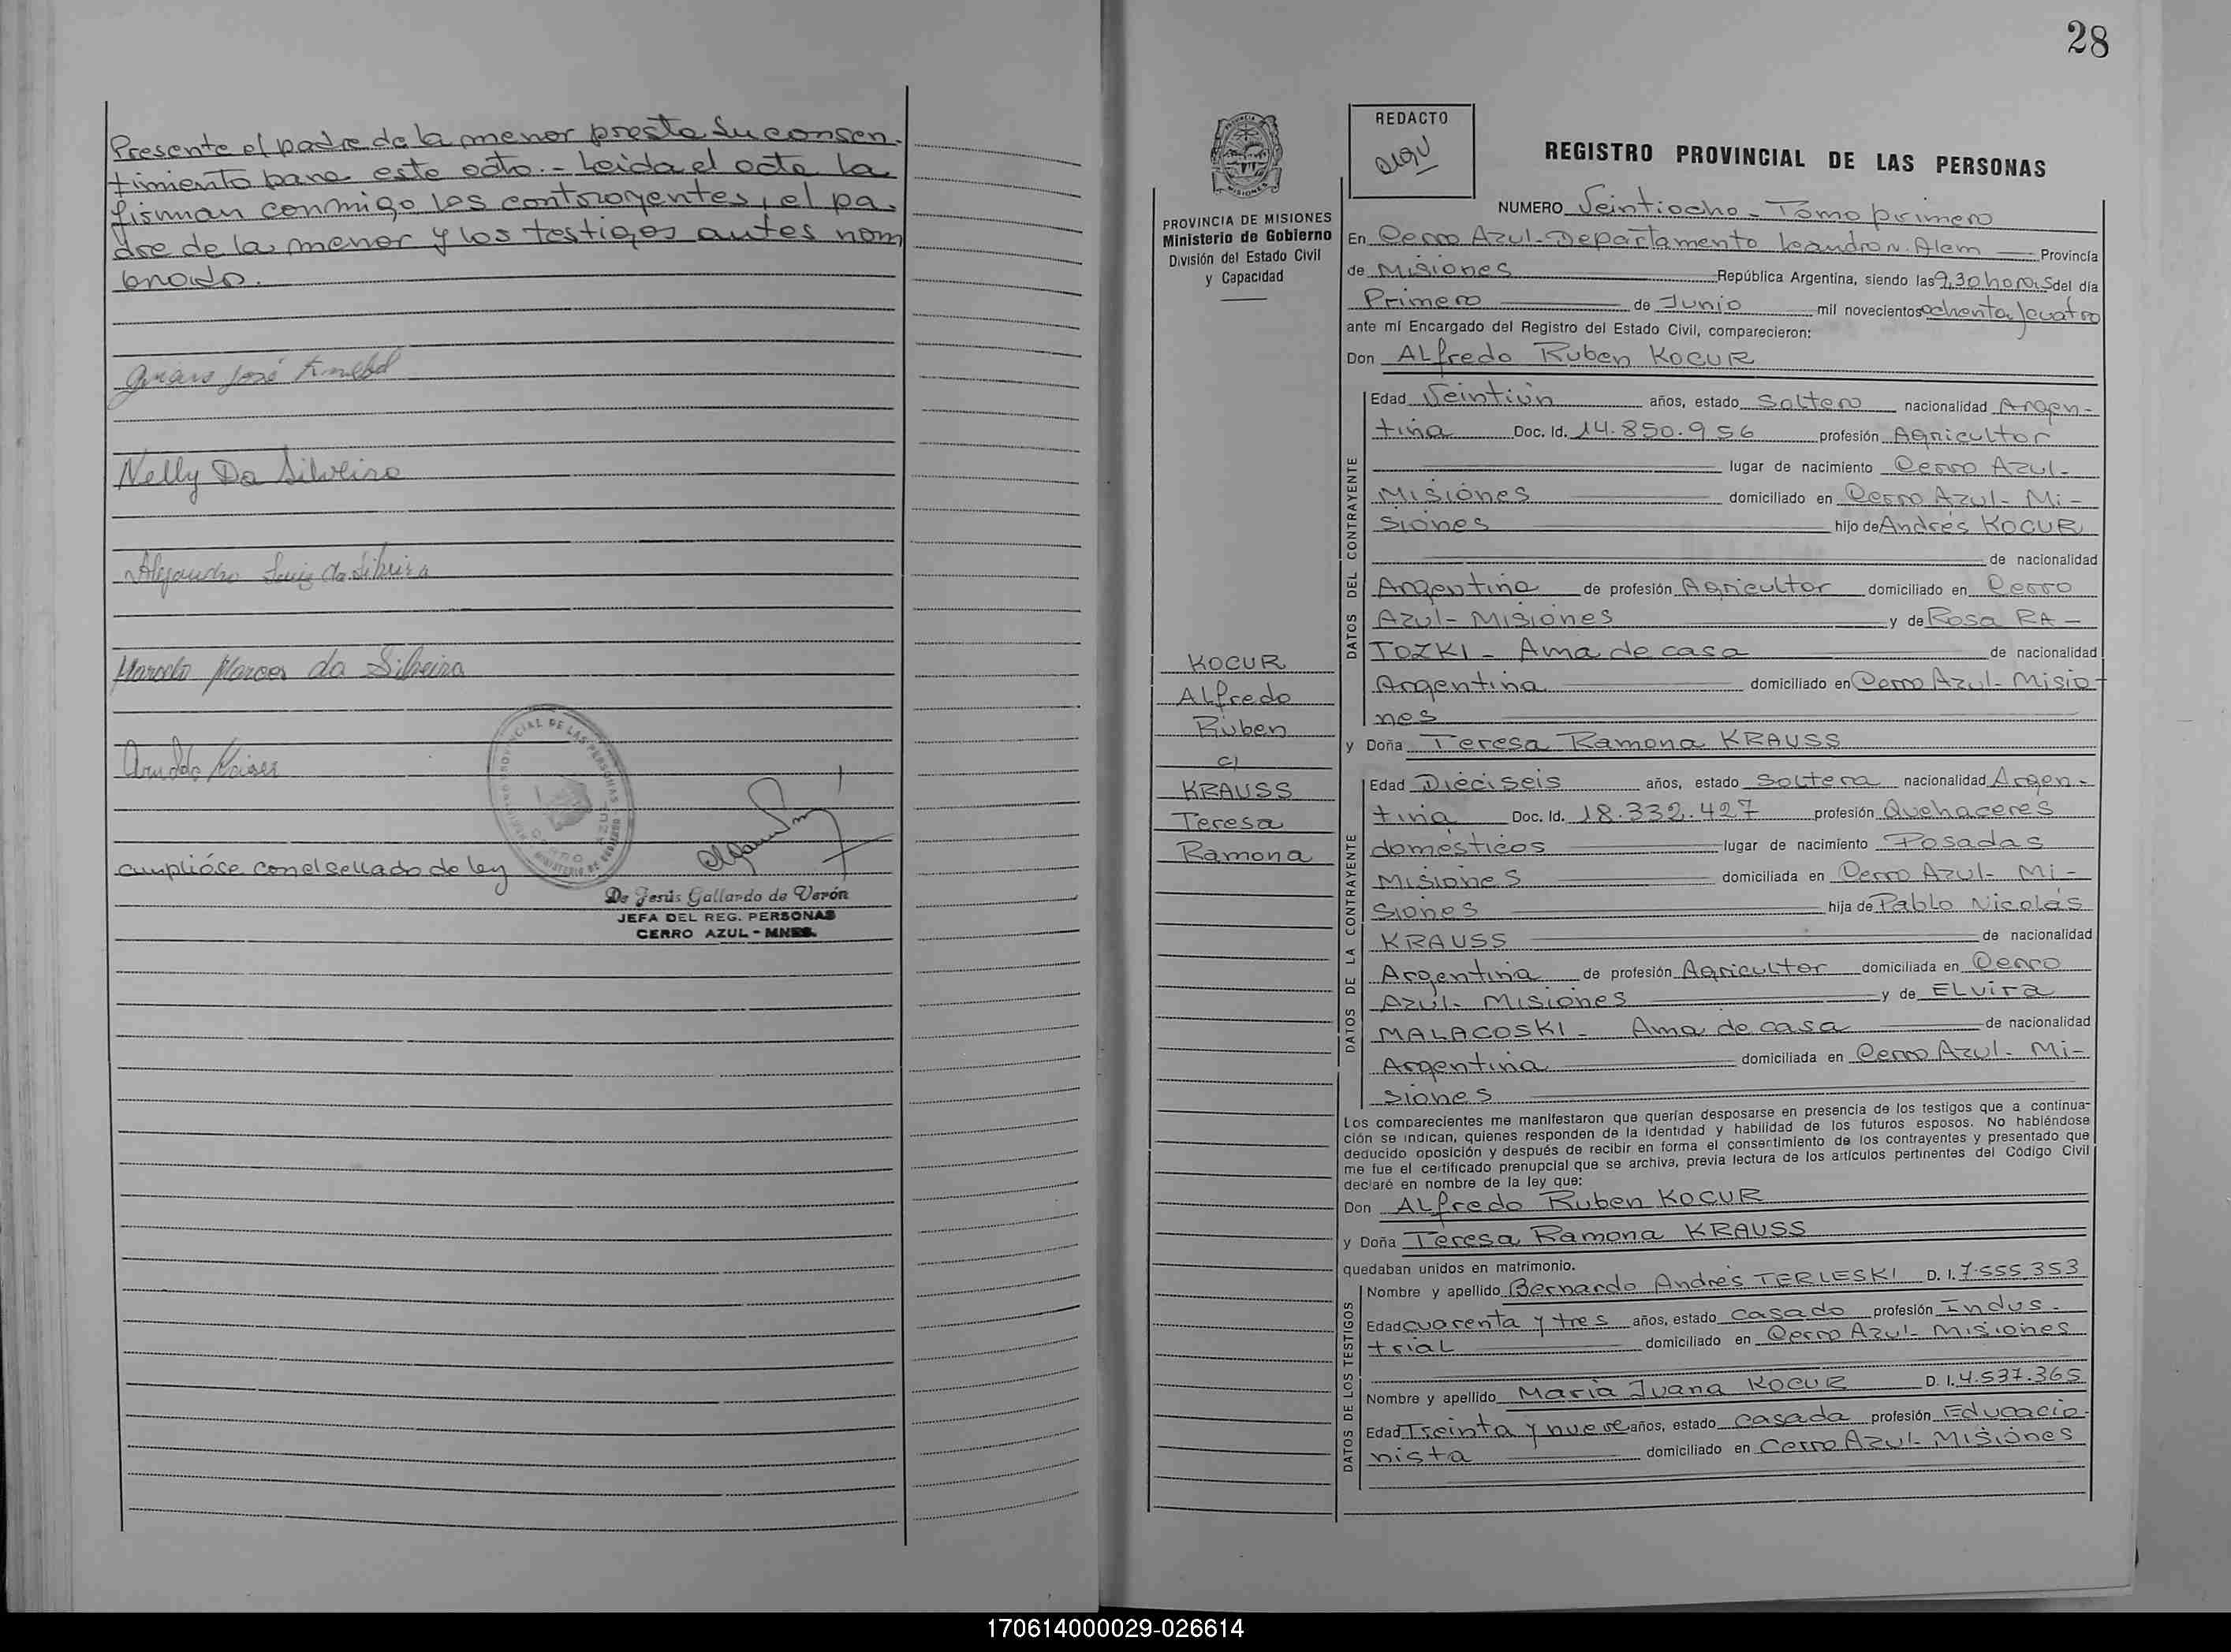 Presente el padre de la menor presta su consen-
timiento para este acto.- Leida el acta la
firman conmigo los contrayentes, el pa-
dre de la menor y los testigos antes nom
brado.
José
Nelly Da Silveira
Alejandro Luiz da Silveira
Marcelo Marcos da Silveira
Cumplióse con el sellado de ley
De Jesús Gallardo de Verón
JEFA DEL REG. PERSONAS
CERRO AZUL - MNES.
28
PROVINCIA DE MISIONES
Ministerio de Gobierno
División del Estado Civil
y Capacidad
KOCUR
Alfredo
Ruben
c/
KRAUSS
Teresa
Ramona
REDACTO
REGISTRO PROVINCIAL DE LAS PERSONAS
NUMERO Veintiocho - Tomo primero
En Cerro Azul- Departamento Leandro N. Alem Provincia
de Misiones República Argentina, siendo las 9,30 horas del día
Primero de Junio mil novecientos ochenta y cuatro
ante mí Encargado del Registro del Estado Civil, comparecieron:
Don Alfredo Ruben KOCUR
DATOS DEL CONTRAYENTE
Edad Veintiún años, estado Soltero nacionalidad Argen-
tina Doc. Id. 14.850.956 profesión Agricultor
lugar de nacimiento Cerro Azul-
Misiones domiciliado en Cerro Azul- Mi-
siones hijo de Andrés KOCUR
de nacionalidad
Argentina de profesión Agricultor domiciliado en Cerro
Azul- Misiones y de Rosa RA-
TOZKI - Ama de casa de nacionalidad
Argentina domiciliado en Cerro Azul- Misio-
nes
y Doña Teresa Ramona KRAUSS
DATOS DE LA CONTRAYENTE
Edad Dieciseis años, estado Soltera nacionalidad Argen-
tina Doc. Id. 18.332.427 profesión Quehaceres
domésticos lugar de nacimiento Posadas
Misiones domiciliada en Cerro Azul- Mi-
siones hija de Pablo Nicolás
KRAUSS de nacionalidad
Argentina de profesión Agricultor domiciliada en Cerro
Azul- Misiones y de Elvira
MALACOSKI - Ama de casa de nacionalidad
Argentina domiciliada en Cerro Azul- Mi-
siones
Los comparecientes me manifestaron que querían desposarse en presencia de los testigos que a continua-
ción se indican, quienes responden de la identidad y habilidad de los futuros esposos. No habiéndose
deducido oposición y después de recibir en forma el consentimiento de los contrayentes y presentado que
me fue el certificado prenupcial que se archiva, previa lectura de los artículos pertinentes del Código Civil
declaré en nombre de la ley que:
Don Alfredo Ruben KOCUR
y Doña Teresa Ramona KRAUSS
quedaban unidos en matrimonio.
DATOS DE LOS TESTIGOS
Nombre y apellido Bernardo Andrés TERLESKI D. I. 7.555.353
Edad cuarenta y tres años, estado casado profesión Indus-
trial domiciliado en Cerro Azul- Misiones
Nombre y apellido María Juana KOCUR D. I. 4.537.365
Edad Treinta y nueve años, estado casada profesión Educacio-
nista domiciliado en Cerro Azul- Misiones
170614000029-026614